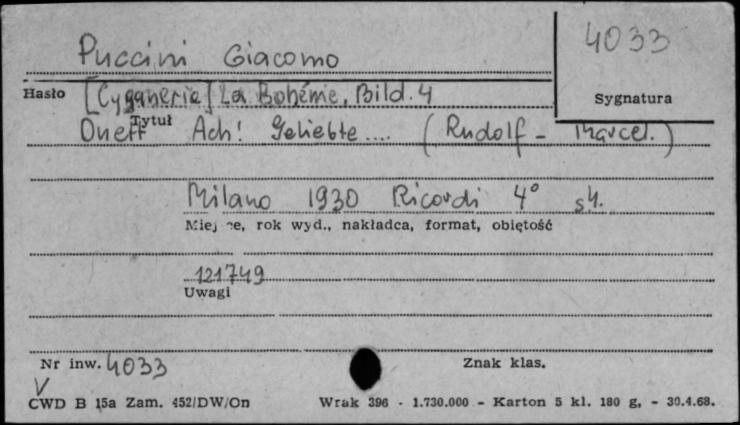 Puccini Giacomo
4033
Hasło [Cyganeria] La Bohéme, Bild. 4
Sygnatura
Tytuł
Duett Ach! Geliebte.... (Rudolf - Marcel.)
Milano 1930 Ricordi 4° s4.
Miejsce, rok wyd., nakładca, format, obiętość
121749
Uwagi
Nr inw. 4033
Znak klas.
V
CWD B 15a Zam. 452/DW/On Wrak 396 - 1.730.000 - Karton 5 kl. 180 g, - 30.4.68.